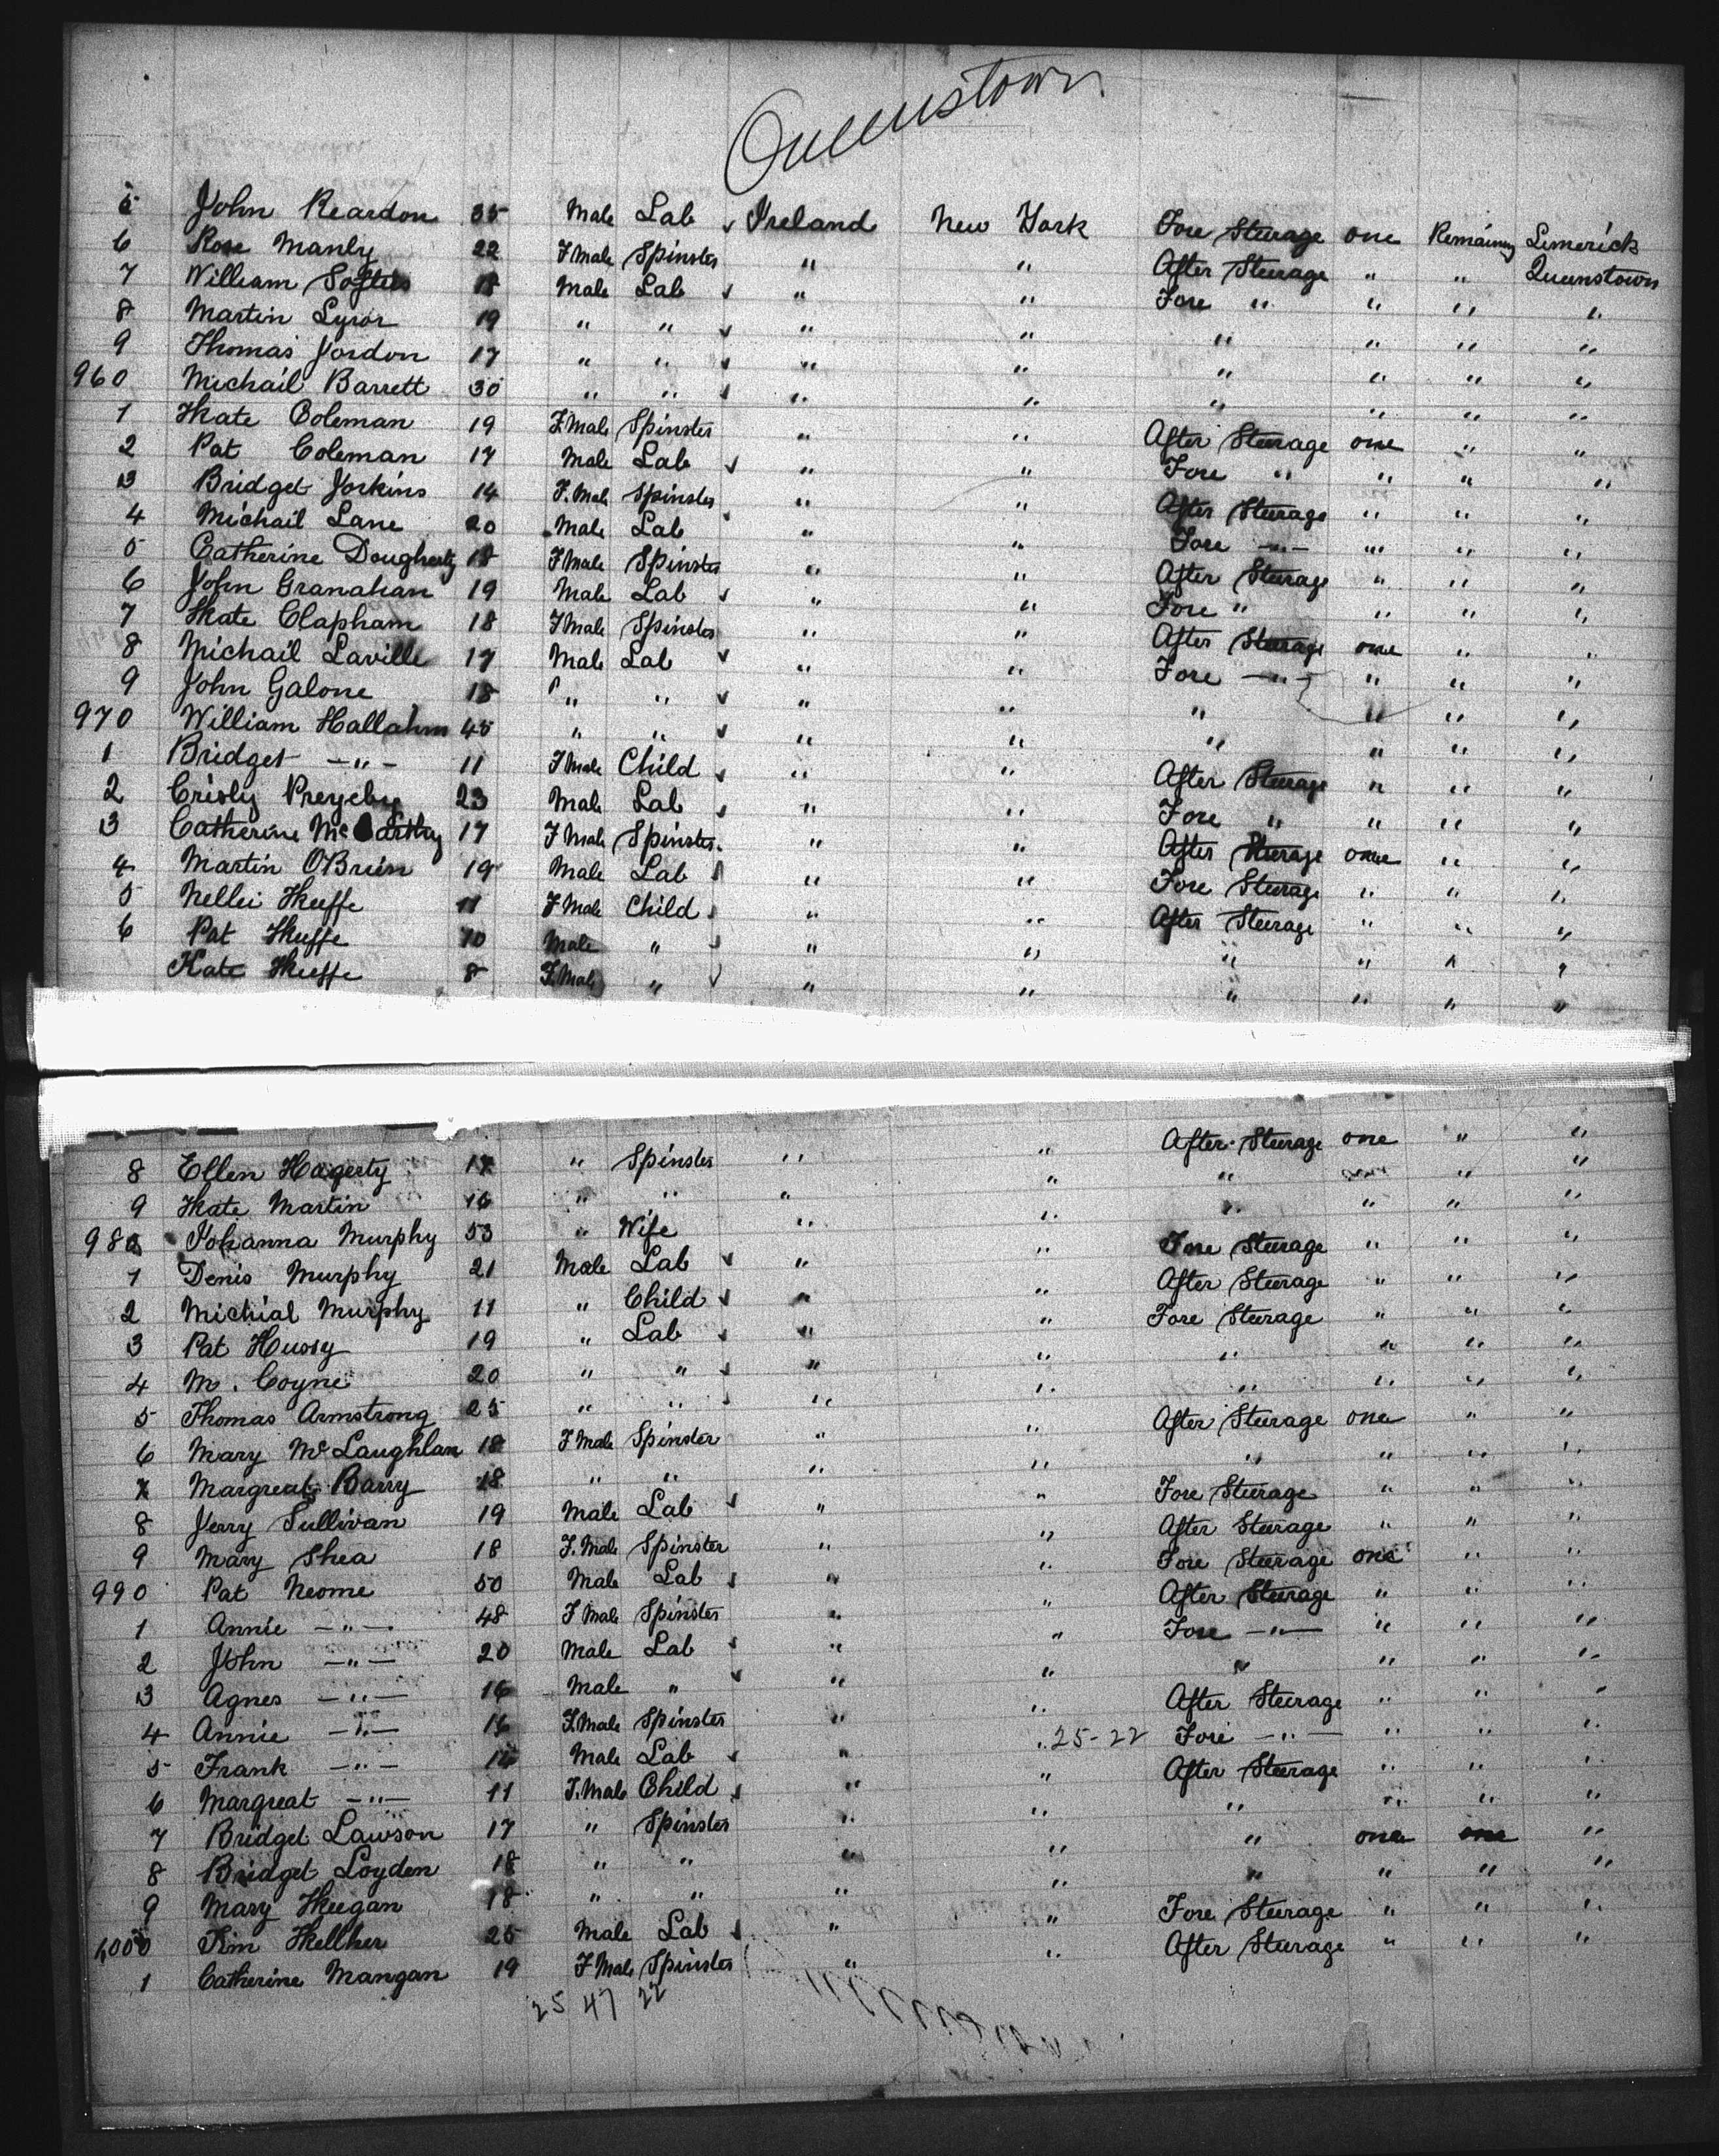 Queenstown
5 John Reardon 35 Male Lab Ireland New York Fore Steerage one Remaining Limerick
6 Rose Manly 22 F Male Spinster " " After Steerage " " Queenstown
7 William 18 Male Lab " " Fore " " " "
8 Martin 19 " " " " " " " "
9 Thomas Jordon 17 " " " " " " " "
960 Michail Barrett 30 " " " " " " " "
1 Kate Coleman 19 F.Male Spinster " " After Steerage one " "
2 Pat Coleman 17 Male Lab " " Fore " " " "
3 Bridget Jorkins 14 F.Male Spinster " " After Steerage " " "
4 Michail Lane 20 Male Lab " " Fore -"- " " "
5 Catherine Dougherty 18 F Male Spinster " " After Steerage " " "
6 John Granahan 19 Male Lab " " Fore " " " "
7 Kate Clapham 18 F Male Spinster " " After Steerage one " "
8 Michail Laville 17 Male Lab " " Fore -"- " " "
9 John Galone 18 " " " " " " " "
970 William Hallahm 45 " " " " " " " "
1 Bridget -"- 11 F Male Child " " After Steerage " " "
2 Cristy 23 Male Lab " " Fore " " " "
3 Catherine McCarthy 17 F Male Spinster " " After Steerage one " "
4 Martin OBrien 19 Male Lab " " Fore Steerage " " "
5 Nellie Keeffe 11 F Male Child " " After Steerage " " "
6 Pat Keeffe 10 Male " " " " " " "
Kate Keeffe 8 F.Male " " " " " " "
After Steerage one " "
8 Ellen Hagerty 17 " Spinster " " " one " "
9 Kate Martin 16 " " " " " " " "
980 Johanna Murphy 53 " Wife " " Fore Steerage " " "
1 Denis Murphy 21 Male Lab " " After Steerage " " "
2 Michial Murphy 11 " Child " " Fore Steerage " " "
3 Pat Hussy 19 " Lab " " " " " "
4 M. Coyne 20 " " " " " " " "
5 Thomas Armstrong 25 " " " " After Steerage one " "
6 Mary McLaughlan 18 F Male Spinster " " " " " "
7 Margreat Barry 18 " " " " Fore Steerage " " "
8 Jerry Sullivan 19 Male Lab " " After Steerage " " "
9 Mary Shea 18 F.Male Spinster " " Fore Steerage one " "
990 Pat Neome 50 Male Lab " " After Steerage " " "
1 Annie -"- 48 F Male Spinster " " Fore -"- " " "
2 John -"- 20 Male Lab " " " " " "
3 Agnes -"- 16 Male " " " After Steerage " " "
4 Annie -"- 16 F.Male Spinster " " 25-22 Fore -"- " " "
5 Frank -"- Male Lab " " After Steerage " " "
6 Margreat -"- 11 F.Male Child " " " " " "
7 Bridget Lawson 17 " Spinster " " " one one "
8 Bridget Loyden 18 " " " " " " " "
9 Mary Keegan 18 " " " " Fore Steerage " " "
1,000 Jim Kellher 25 Male Lab " " After Steerage " " "
1 Catherine Mangan 19 F Male Spinster "
25 47 22